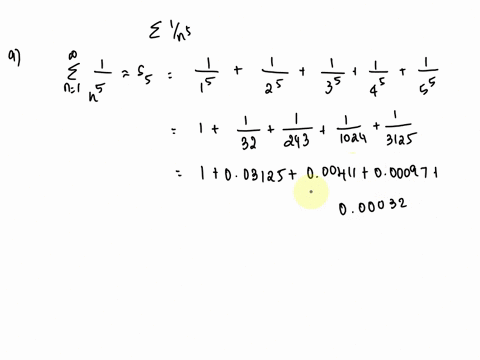 Σ 1/n⁵
a) ∞ Σ n=1 1/n⁵ ≈ S₅ = 1/1⁵ + 1/2⁵ + 1/3⁵ + 1/4⁵ + 1/5⁵
= 1 + 1/32 + 1/243 + 1/1024 + 1/3125
= 1 + 0.03125 + 0.00411 + 0.00097 +
0.00032